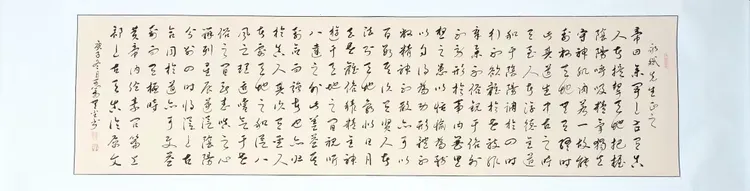 帝曰余闻上古有真
人者提挈天地把握
阴阳呼吸精气独立
守神肌肉若一故能
寿敝天地无有终时
此其道生中古之时
有至人者淳德全道
和于阴阳调于四时
行不欲离于世被服
章举不欲观于俗外
不劳形于事内无思
想之患以恬愉为务
以自得为功形体不
敝精神不散亦可以
百数其次有贤人者
法则天地象似日月
去世离俗积精全神
游行天地之间视听
八达之外此盖益其
寿命而强者也亦归
于真人其次有圣人
者处天地之和从八
风之理适嗜欲于世
俗之间无恚嗔之心
辨列星辰逆从阴阳
分别四时将从上古
合同于道亦可使益
寿而有极时
黄帝内经素问篇上